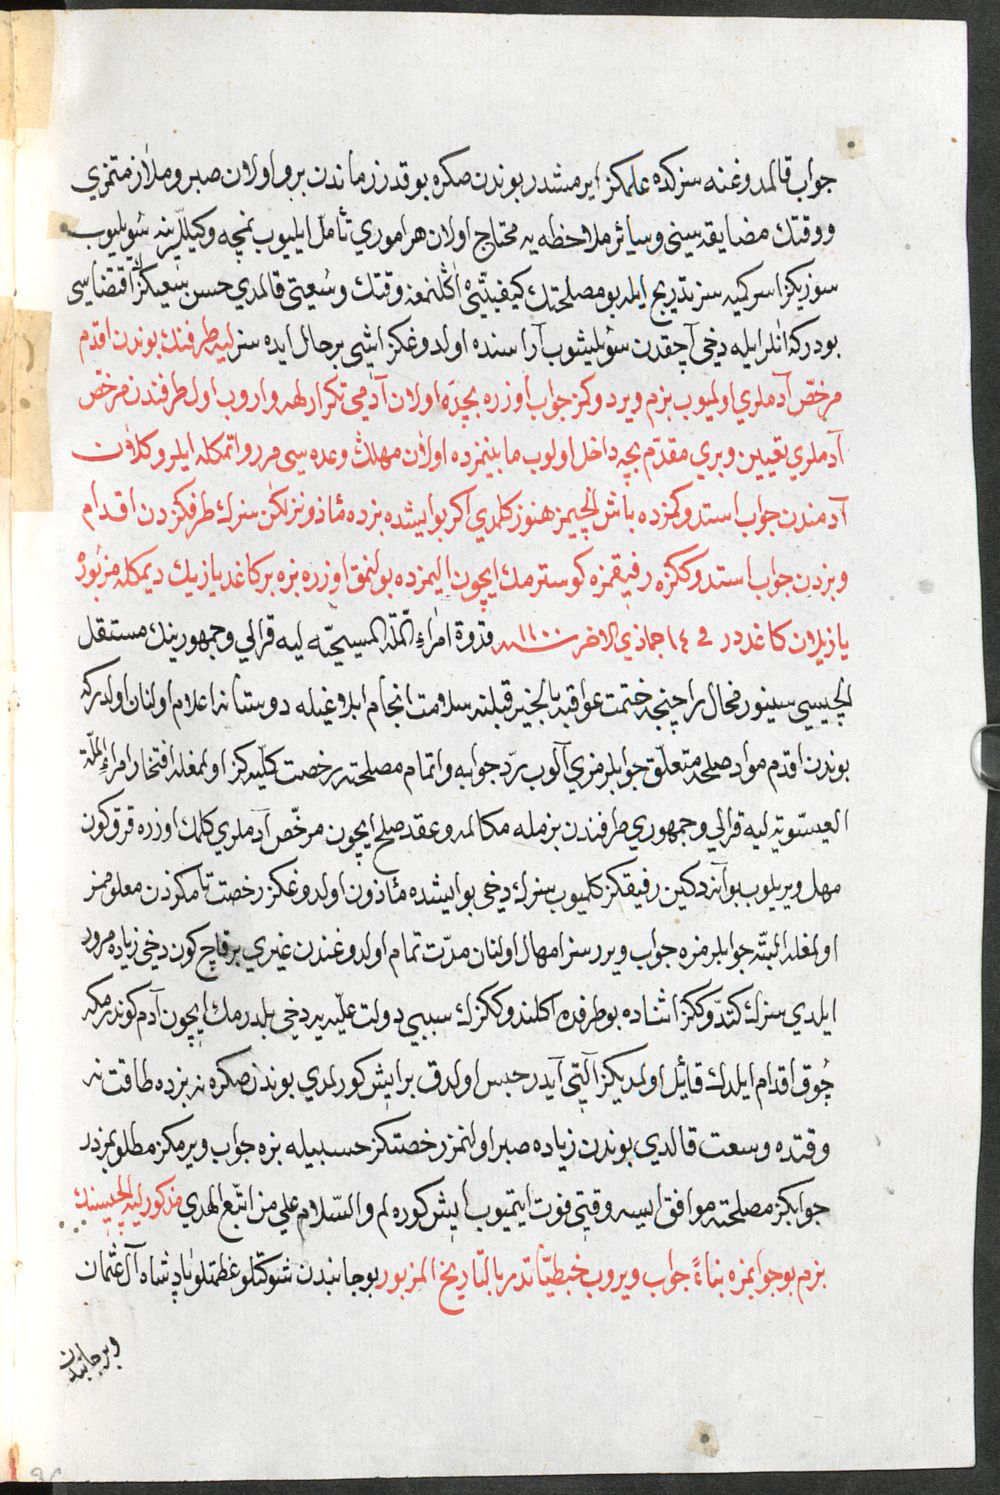 جواب قالمدوغنه سزكده علمكز ايرمشدر بوندن صكره بو قدر زماندن برو اولان صبر و ملازمتمزي
و وقتك مضايقه سيني و سائر ملاحظه يه محتاج اولان هر اموري تأمل ايليوب نمچه وكيللرينه سويليوب
سوزيكز اسركيه سز تدريج ايله بو مصلحتك كيفيتني اكلنمغه وقتك وسعتي قالمدي حسن سعيكز اقتضاسي
بودركه انلر ايله دخي آچقدن سويلشوب آراسنده اولدوغكز ايشي بر حال ايده سز ليه طرفنك بوندن اقدم
مرخص آدملري اولميوب بزم ويردوكمز جواب اوزره بچده اولان آدمي تكرار لهه واروب اول طرفندن مرخص
آدملري تعيين و بري مقدم بچه داخل اولوب مابينمزده اولان مهلك وعده سي مرور اتمكله ايلرو كلان
آدمندن جواب استدوكمزده باش ايلچيمز هنوز كلمدي اكر بو ايشده بزده مأذونز لكن سزك طرفكزدن اقدام
و بزدن جواب استدوككزه رفيقمزه كوسترمك ايچون اليمزده بولنمق اوزره بزه بر كاغد يازيك ديمكله مزبوره
يازيلان كاغددر في ١٤ جماذي الاخر سنه ١١٠٠ قدوة امراء الملة المسيحيه ليه قرالي و جمهورينك مستقل
ايلچيسي سينور فحال راچنجه ختمت عواقبه بالخير قبلنه سلامت انجام ابلاغيله دوستانه اعلام اولنان اولدركه
بوندن اقدم مواد صلحه متعلق جوابلرمزي آلوب رد جوابه و اتمام مصلحته رخصت كليه كز اولمغله افتخار امراء الملة
العيسويه ليه قرالي و جمهوري طرفندن بزمله مكالمه و عقد صلح ايچون مرخص آدملري كلمك اوزره قرق كون
مهل ويريلوب بو آنه دكين رفيقكز كلميوب سزك دخي بو ايشده مأذون اولدوغكز رخصت نامكزدن معلومز
اولمغله البته جوابلرمزه جواب ويرر سز امهال اولنان مدت تمام اولدوغندن غيري بر قاچ كون دخي زياده مرور
ايلدي سزك كتدوككز اثناده بو طرفده اكلندوككزك سببي دولت عليه يه دخي بلدرمك ايچون آدم كوندرمكه
چوق اقدام ايلدك قائل اولمديكز آلتي آيدر حبس اولدق بر ايش كورلمدي بوندن صكره نه بزده طاقت نه
وقتده وسعت قالدي بوندن زياده صبر اولنمز رخصتكز حسبيله بزه جواب ويرمكز مطلوبمزدر
جوابكز مصلحته موافق ايسه وقتي فوت ايتميوب ايش كوره لم والسلام علي من اتبع الهدي مذكور ليه ايلچيسنك
بزم بو جوابمزه بناءً جواب ويروب خبطياتدر بالتاريخ المزبور بو جانبدن شوكتلو عظمتلو پادشاه آل عثمان
و بر جانبدن